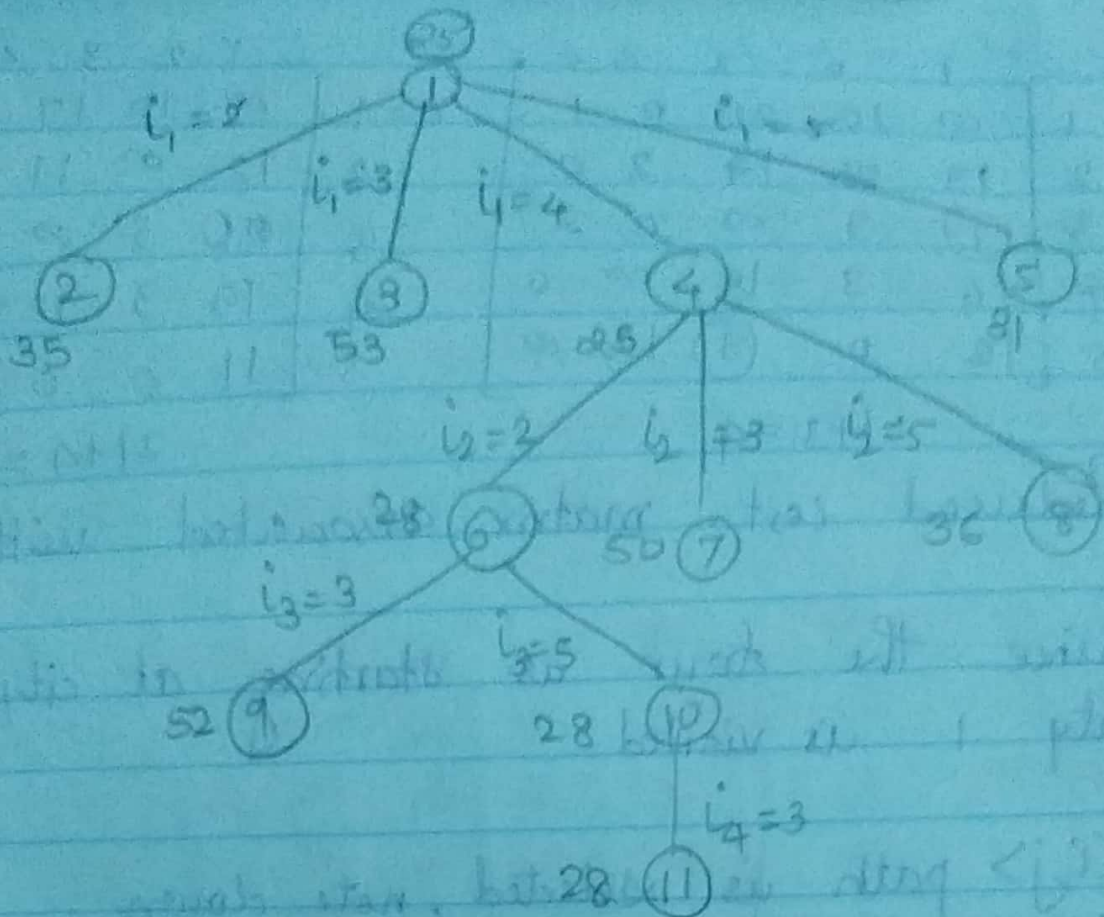 25
1
i₁ = 2
i₁ = 3
i₁ = 4
i₁ =
2
3
4
5
35
53
25
31
i₂ = 2
i₂ = 3
i₂ = 5
28
6
50
7
36
8
i₃ = 3
i₃ = 5
52
9
28
10
i₄ = 3
28
11